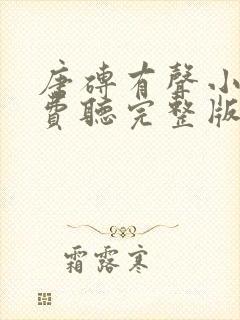 唐磚有聲小
費聽完整版
霜露寒